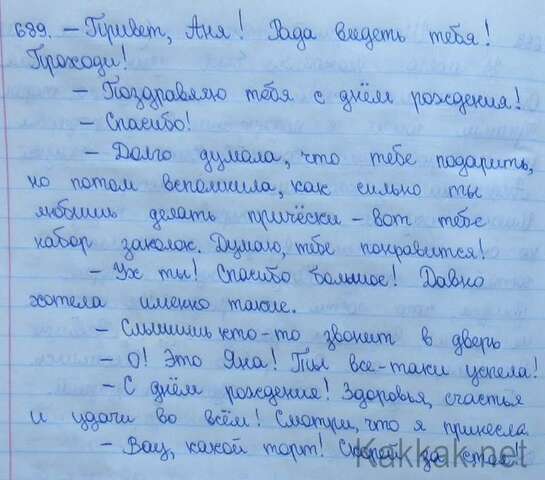 689. – Привет, Аня! Рада видеть тебя!
Проходи!
– Поздравляю тебя с днём рождения!
– Спасибо!
– Долго думала, что тебе подарить,
но потом вспомнила, как сильно ты
любишь делать причёски – вот тебе
набор заколок. Думаю, тебе понравится!
– Ух ты! Спасибо большое! Давно
хотела именно такие.
– Слышишь кто-то звонит в дверь
– О! Это Яна! Ты все-таки успела!
– С днём рождение! Здоровья, счастья
и удачи во всём! Смотри, что я принесла
– Вау, какой торт! Скорей за стол!
Kakkak.net